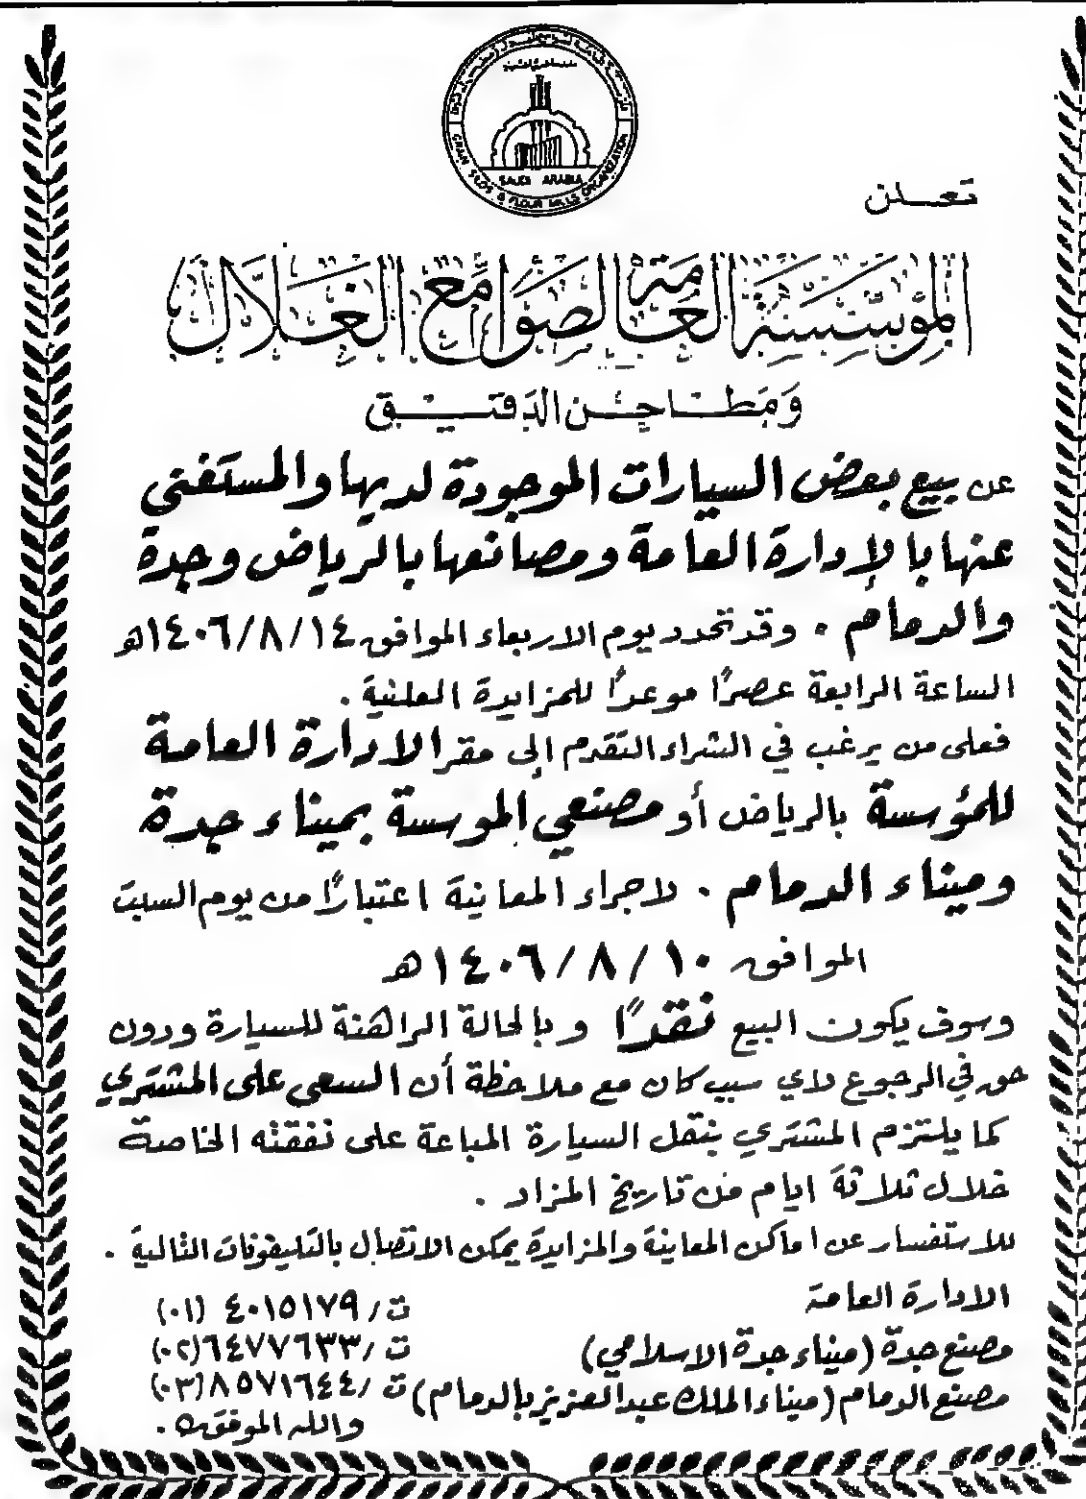 GRAIN SILOS & FLOUR MILLS ORGANIZATION
SAUDI ARABIA
تعلن
المؤسسة العامة لصوامع الغلال
ومطاحن الدقيق
عن بيع بعض السيارات الموجودة لديها والمستغنى
عنها بالإدارة العامة ومصانعها بالرياض وجدة
والدمام . وقد تحدد يوم الاربعاء الموافق ١٤٠٦/٨/١٤هـ
الساعة الرابعة عصرًا موعدًا للمزايدة العلنية .
فعلى من يرغب في الشراء التقدم إلى مقر الادارة العامة
للمؤسسة بالرياض أو مصنعي الموسسة بميناء جدة
وميناء الدمام . لاجراء المعاينة اعتبارًا من يوم السبت
الموافق ١٤٠٦/٨/١٠هـ
وسوف يكون البيع نقدًا وبالحالة الراهنة للسيارة ودون
حق في الرجوع لاي سبب كان مع ملاحظة أن السعى على المشتري
كما يلتزم المشتري بنقل السيارة المباعة على نفقته الخاصة
خلال ثلاثة ايام من تاريخ المزاد .
للاستفسار عن اماكن المعاينة والمزايدة يمكن الاتصال بالتليفونات التالية .
الادارة العامة ت/ ٤٠١٥١٧٩ (٠١)
مصنع جدة (ميناء جدة الاسلامي) ت/ ٦٤٧٧٦٣٣ (٠٢)
مصنع الدمام (ميناء الملك عبدالعزيز بالدمام) ت/ ٨٥٧١٦٤٤ (٠٣)
والله الموفق .